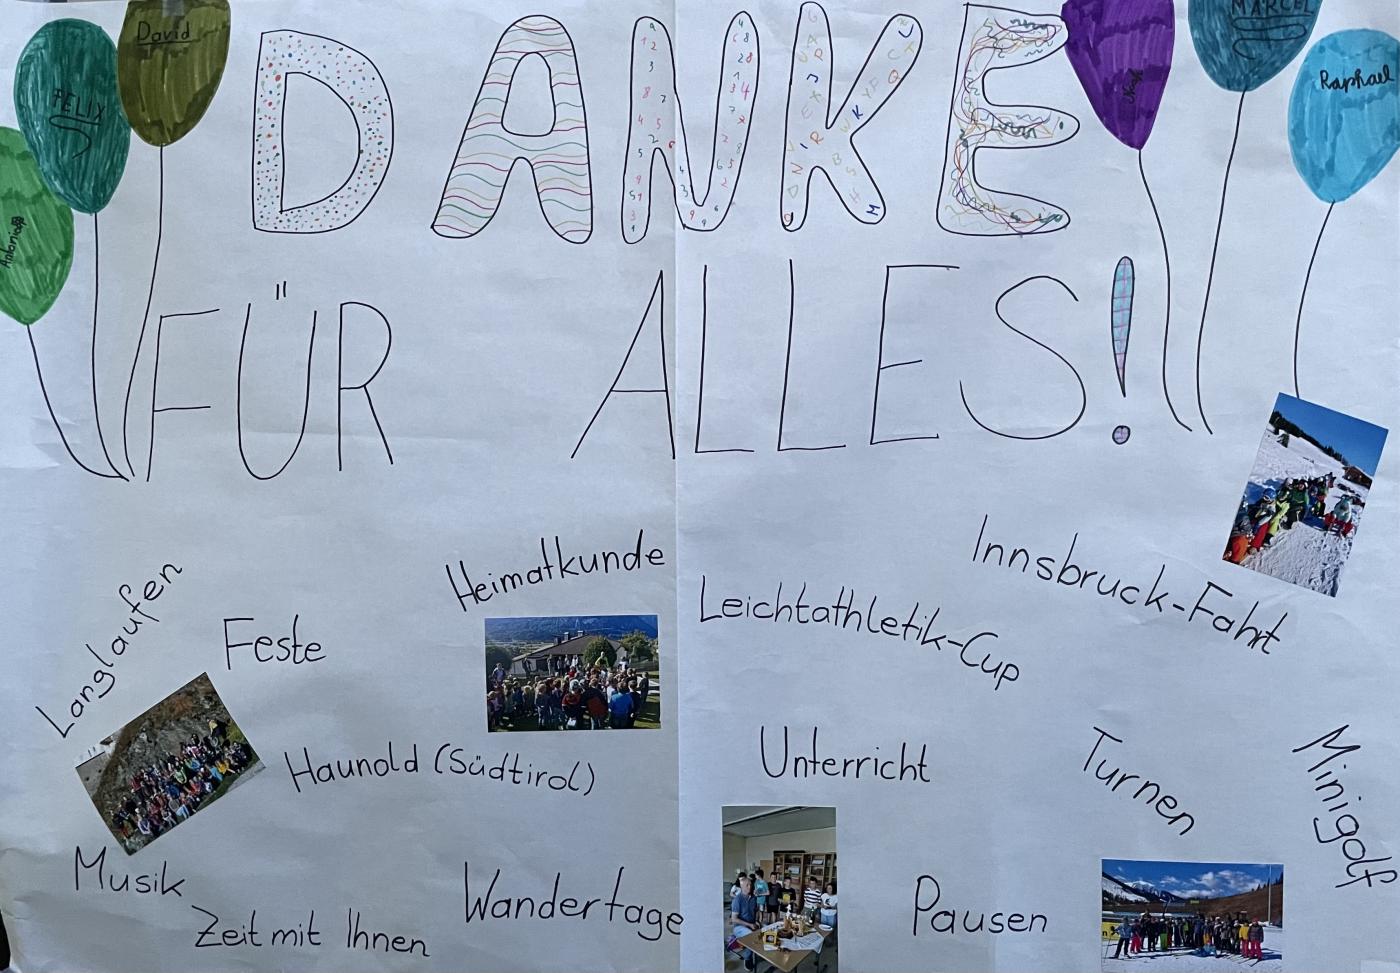 David
MARCEL
FELIX
Noah
Raphael
Antonia
DANKE
FÜR ALLES!
Innsbruck-Fahrt
Heimatkunde
Langlaufen
Feste
Leichtathletik-Cup
Haunold (Südtirol)
Unterricht
Turnen
Minigolf
Musik
Wandertage
Pausen
Zeit mit Ihnen